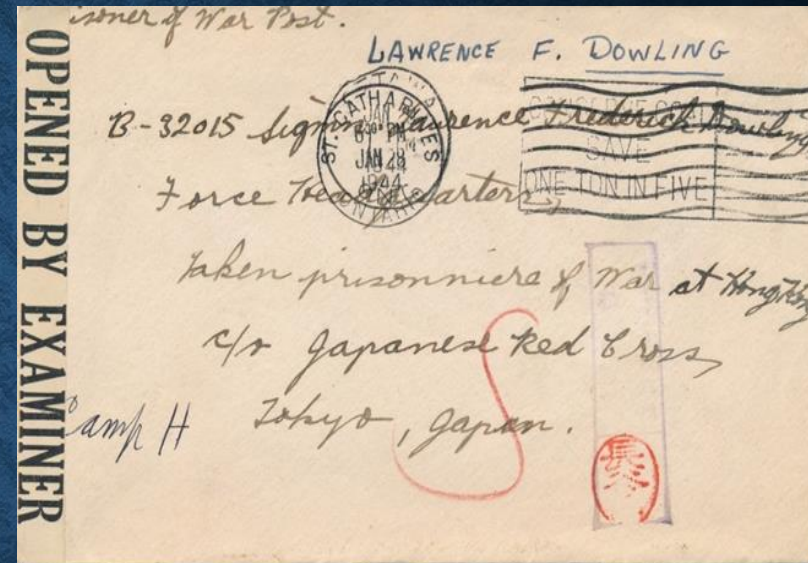 OPENED BY EXAMINER
isoner of War Post.
LAWRENCE F. DOWLING
ST. CATHARINES
PM
JAN 28
1944
ONTARIO
CONSERVE COAL
SAVE
ONE TON IN FIVE
B-32015 Signm Laurence Frederick Dowling,
Force Headquarters,
Taken prisonniere of War at Hong Kong
c/o Japanese Red Cross,
Tokyo, Japan.
Camp H